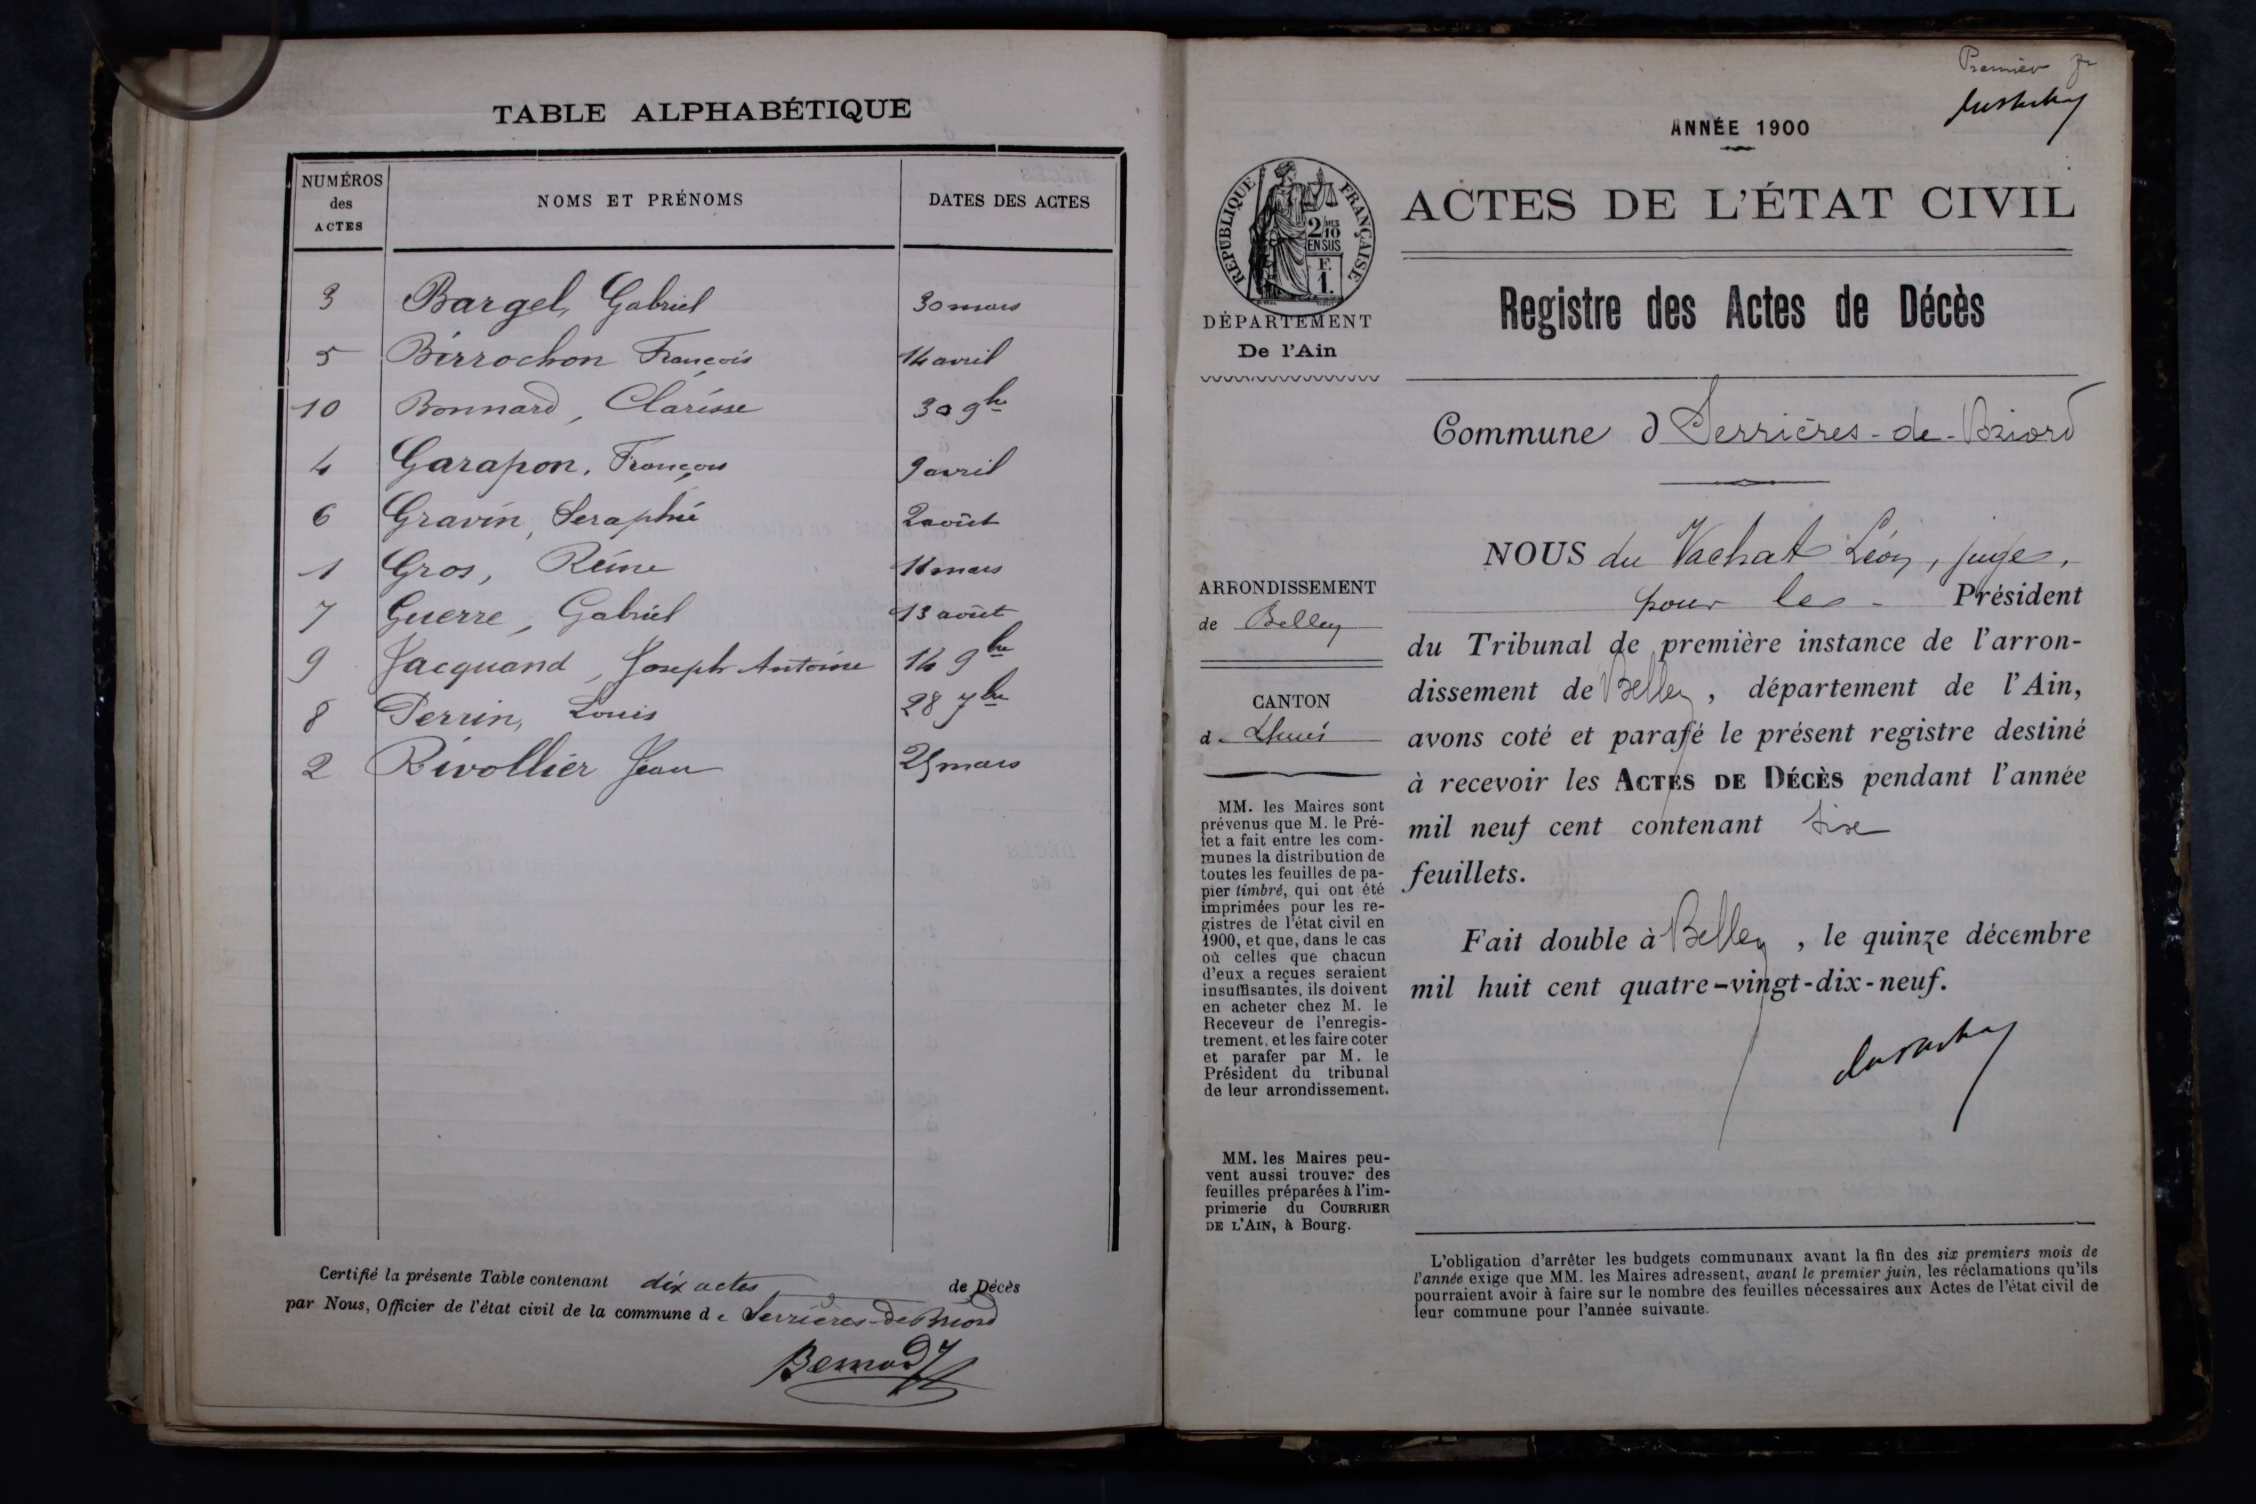 TABLE ALPHABÉTIQUE
NUMÉROS des ACTES
NOMS ET PRÉNOMS
DATES DES ACTES
3 Bargel, Gabriel 30 mars
5 Birrochon François 14 avril
10 Bonnard, Clarisse 30 9bre
4 Garapon, François 9 avril
6 Gravin, Seraphie 2 août
1 Gros, Reine 11 mars
7 Guerre, Gabriel 13 août
9 Jacquand, Joseph Antoine 14 9bre
8 Perrin, Louis 28 7bre
2 Rivollier Jean 25 mars
Certifié la présente Table contenant dix actes de Décès
par Nous, Officier de l'état civil de la commune de Serrières-de Briord
Premier
ANNÉE 1900
RÉPUBLIQUE FRANÇAISE
2/10 EN SUS
F. 1.
ACTES DE L'ÉTAT CIVIL
DÉPARTEMENT
De l'Ain
Registre des Actes de Décès
Commune d Serrières-de-Briord
ARRONDISSEMENT
de Belley
CANTON
d Lhuis
MM. les Maires sont
prévenus que M. le Pré-
fet a fait entre les com-
munes la distribution de
toutes les feuilles de pa-
pier timbré, qui ont été
imprimées pour les re-
gistres de l'état civil en
1900, et que, dans le cas
où celles que chacun
d'eux a reçues seraient
insuffisantes, ils doivent
en acheter chez M. le
Receveur de l'enregis-
trement, et les faire coter
et parafer par M. le
Président du tribunal
de leur arrondissement.
MM. les Maires peu-
vent aussi trouver des
feuilles préparées à l'im-
primerie du COURRIER
DE L'AIN, à Bourg.
NOUS du Vachat Léon, juge,
pour le - Président
du Tribunal de première instance de l'arron-
dissement de Belley, département de l'Ain,
avons coté et parafé le présent registre destiné
à recevoir les ACTES DE DÉCÈS pendant l'année
mil neuf cent contenant six
feuillets.
Fait double à Belley, le quinze décembre
mil huit cent quatre-vingt-dix-neuf.
L'obligation d'arrêter les budgets communaux avant la fin des six premiers mois de
l'année exige que MM. les Maires adressent, avant le premier juin, les réclamations qu'ils
pourraient avoir à faire sur le nombre des feuilles nécessaires aux Actes de l'état civil de
leur commune pour l'année suivante.